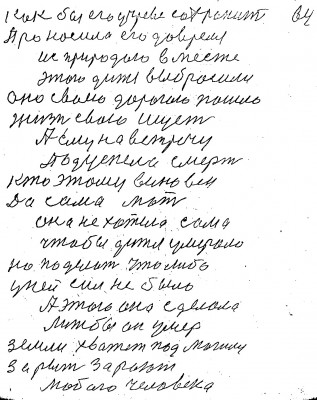 Как бы его чреве сохранит 64
Проносила его довремя
ис природого вместе
этого дитя выбросили
Оно свою дорогою пошло
жизн свою ищет
А ему на встречу
Подуспела смерт
Кто этому виновен
Да сама мот
она не хотела сама
чтобы дитя умирало
но поделат что либо
у ней сил не было
А этого она сделала
Литбы он умер
Земли хватет под могилу
Зарыт Зароют
любого человека